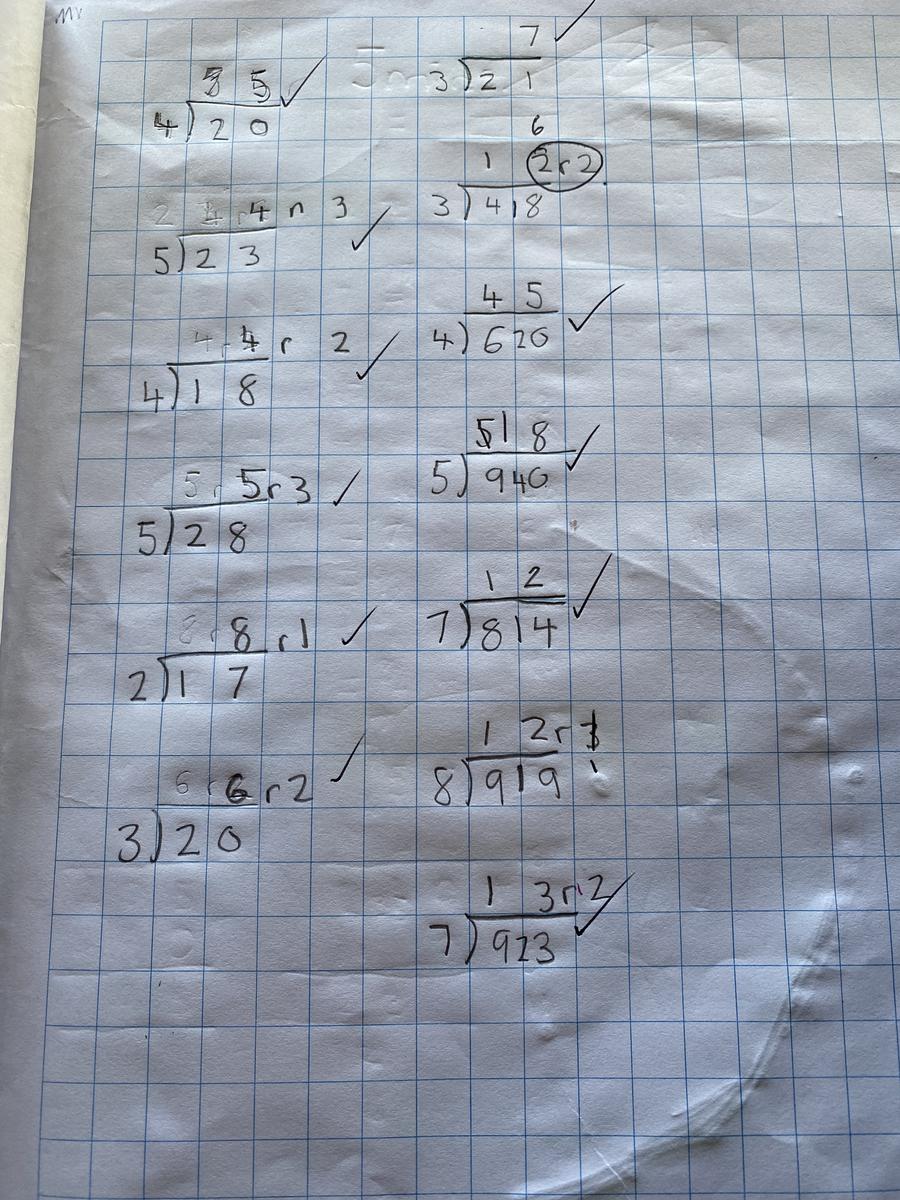 5 5
4)20
4 r 3
5)23
4 r 2
4)18
5r3
5)28
8 r1
2)17
6 r2
3)20
7
3)21
6
1 2r2
3)418
4 5
4)620
518
5)940
1 2
7)814
1 2r 1
8)919
1 3r2
7)923